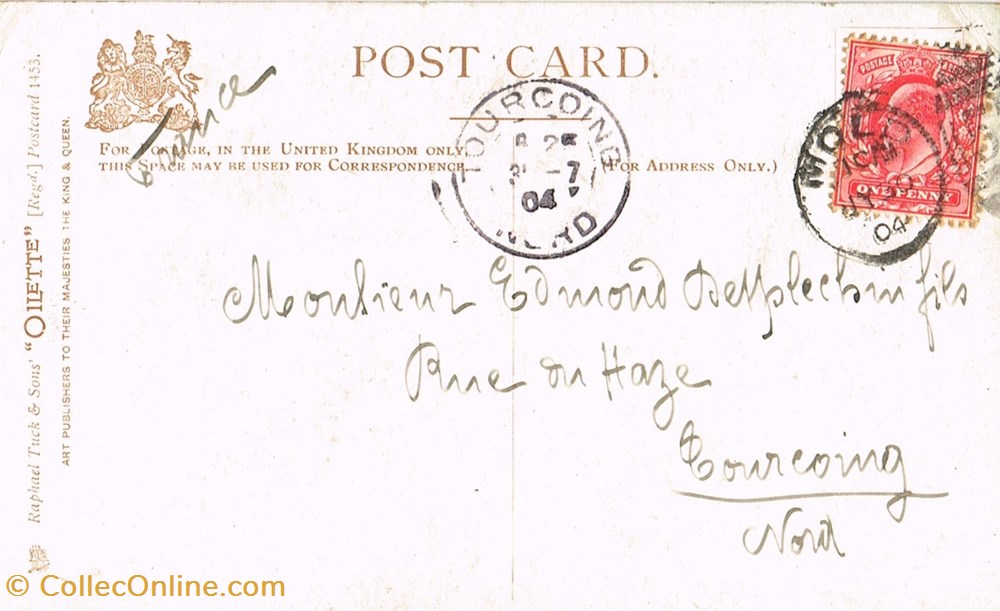 POST CARD.
France
FOR POSTAGE, IN THE UNITED KINGDOM ONLY,
THIS SPACE MAY BE USED FOR CORRESPONDENCE
(FOR ADDRESS ONLY.)
TOURCOING
04
NORD
POSTAGE
ONE PENNY
04
Monsieur Edmond Desplechin fils
Rue du Haze
Tourcoing
Nord
Raphael Tuck & Sons' "OILETTE" [Regd.] Postcard 1453.
ART PUBLISHERS TO THEIR MAJESTIES THE KING & QUEEN.
© CollecOnline.com